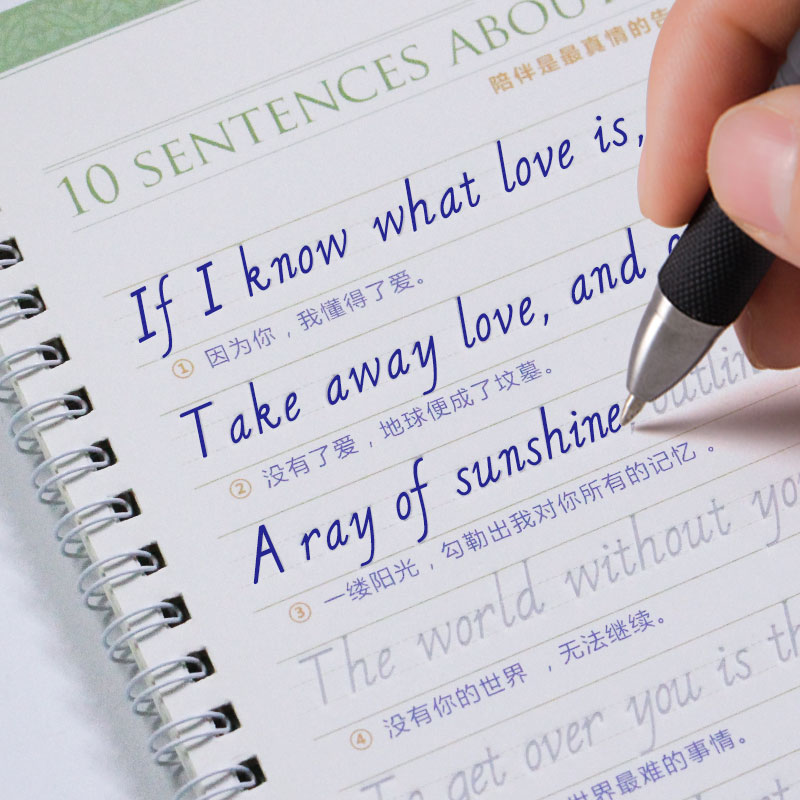 10 SENTENCES ABOUT
陪伴是最真情的告
If I know what love is,
① 因为你，我懂得了爱。
Take away love, and
② 没有了爱，地球便成了坟墓。
A ray of sunshine, outlin
③ 一缕阳光，勾勒出我对你所有的记忆 。
The world without yo
④ 没有你的世界 ，无法继续。
To get over you is th
世界最难的事情。